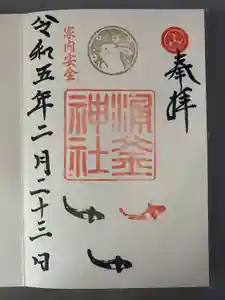 奉拝
涌釜
神社
家内安全
令和五年二月二十三日